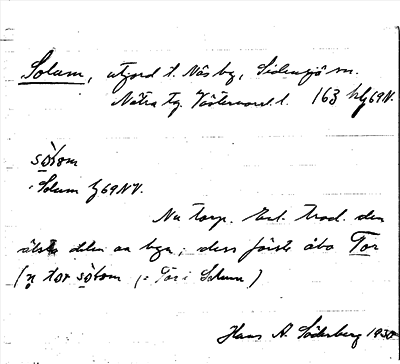 Solum, utjord t. Näs by, Sidensjö sn.
Nätra tg. Västernorrl. l. 163 hbg 69 N.
sò̤lom
i Solum bg 69 NV.
Nu torp. Enl. trad. den
älsta delen av byn; dess förste åbo Tor
(n tor sò̤lom (: Tor i Solum)
Hans A. Söderberg 1930